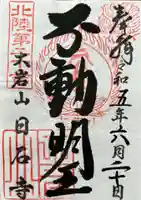 奉拝 令和五年六月二十日
不動明王
北陸第
大岩山 日石寺